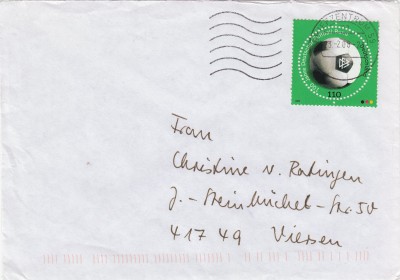 110
DFB
Frau
Christine v. Ratingen
J.-Steinbüchel-Str. 50
41749 Viersen